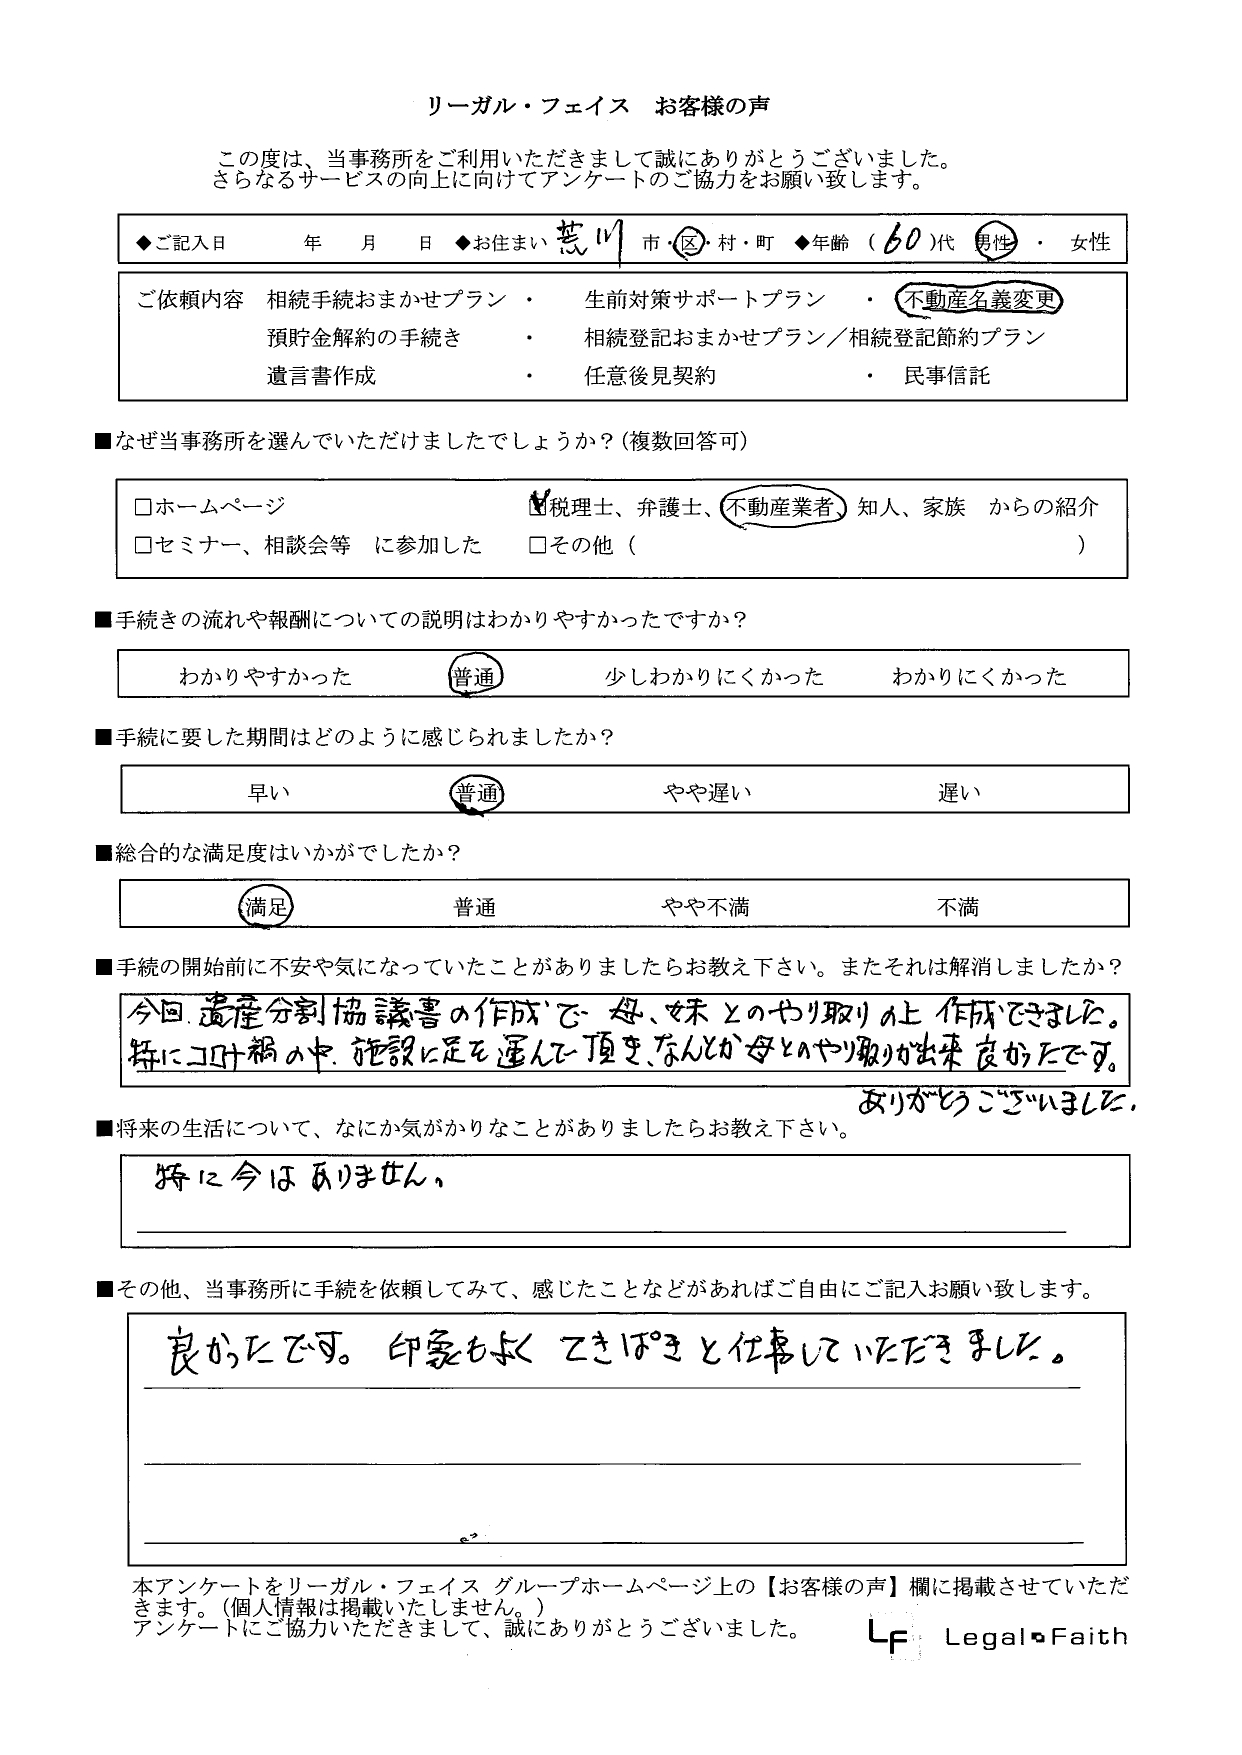 リーガル・フェイス　お客様の声
この度は、当事務所をご利用いただきまして誠にありがとうございました。
さらなるサービスの向上に向けてアンケートのご協力をお願い致します。
◆ご記入日　　年　　月　　日　◆お住まい 荒川 市・区・村・町　◆年齢（60）代　男性　・　女性
ご依頼内容　相続手続おまかせプラン　・　生前対策サポートプラン　・　不動産名義変更
預貯金解約の手続き　・　相続登記おまかせプラン／相続登記節約プラン
遺言書作成　・　任意後見契約　・　民事信託
■なぜ当事務所を選んでいただけましたでしょうか？（複数回答可）
□ホームページ　☑税理士、弁護士、不動産業者、知人、家族　からの紹介
□セミナー、相談会等　に参加した　□その他（　　　）
■手続きの流れや報酬についての説明はわかりやすかったですか？
わかりやすかった　普通　少しわかりにくかった　わかりにくかった
■手続に要した期間はどのように感じられましたか？
早い　普通　やや遅い　遅い
■総合的な満足度はいかがでしたか？
満足　普通　やや不満　不満
■手続の開始前に不安や気になっていたことがありましたらお教え下さい。またそれは解消しましたか？
今回、遺産分割協議書の作成で 母、妹 とのやり取りの上 作成できました。
特にコロナ禍の中、施設に足を運んで頂き、なんとか母とのやり取りが出来 良かったです。
ありがとうございました。
■将来の生活について、なにか気がかりなことがありましたらお教え下さい。
特に今はありません。
■その他、当事務所に手続を依頼してみて、感じたことなどがあればご自由にご記入お願い致します。
良かったです。 印象もよく てきぱきと仕事していただきました。
本アンケートをリーガル・フェイス グループホームページ上の【お客様の声】欄に掲載させていただ
きます。（個人情報は掲載いたしません。）
アンケートにご協力いただきまして、誠にありがとうございました。
LF Legal Faith